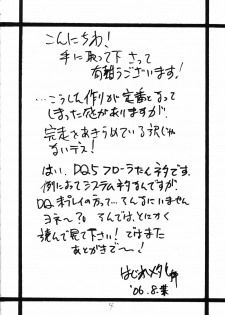 こんにちわ!
手に取って下さって
有難うございます!
…こうしん作りが定番となって
しまった感がありますが、
完走をあきらめている訳じゃ
ないデス!
はい、DQ5フローラたんネタです。
例によってシステムネタなんですが、
DQ
って…そんなにいません
ヨネ〜?
そんでは、とにかく
読んで見て下さい!ではまた
あとがきで〜!
はじめ
'06.8.
4